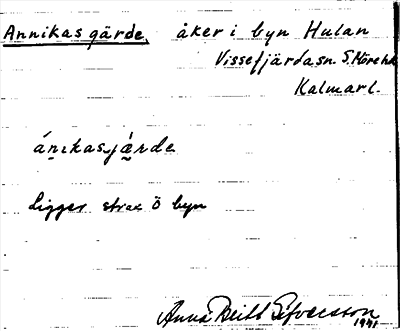 Annikas gärde, åker i byn Hulan
Vissefjärda sn. S. Möre hd
Kalmar l.
ánıkasjǽ̀rde
Ligger strax ö byn
Anna Britt Sifversson
1941